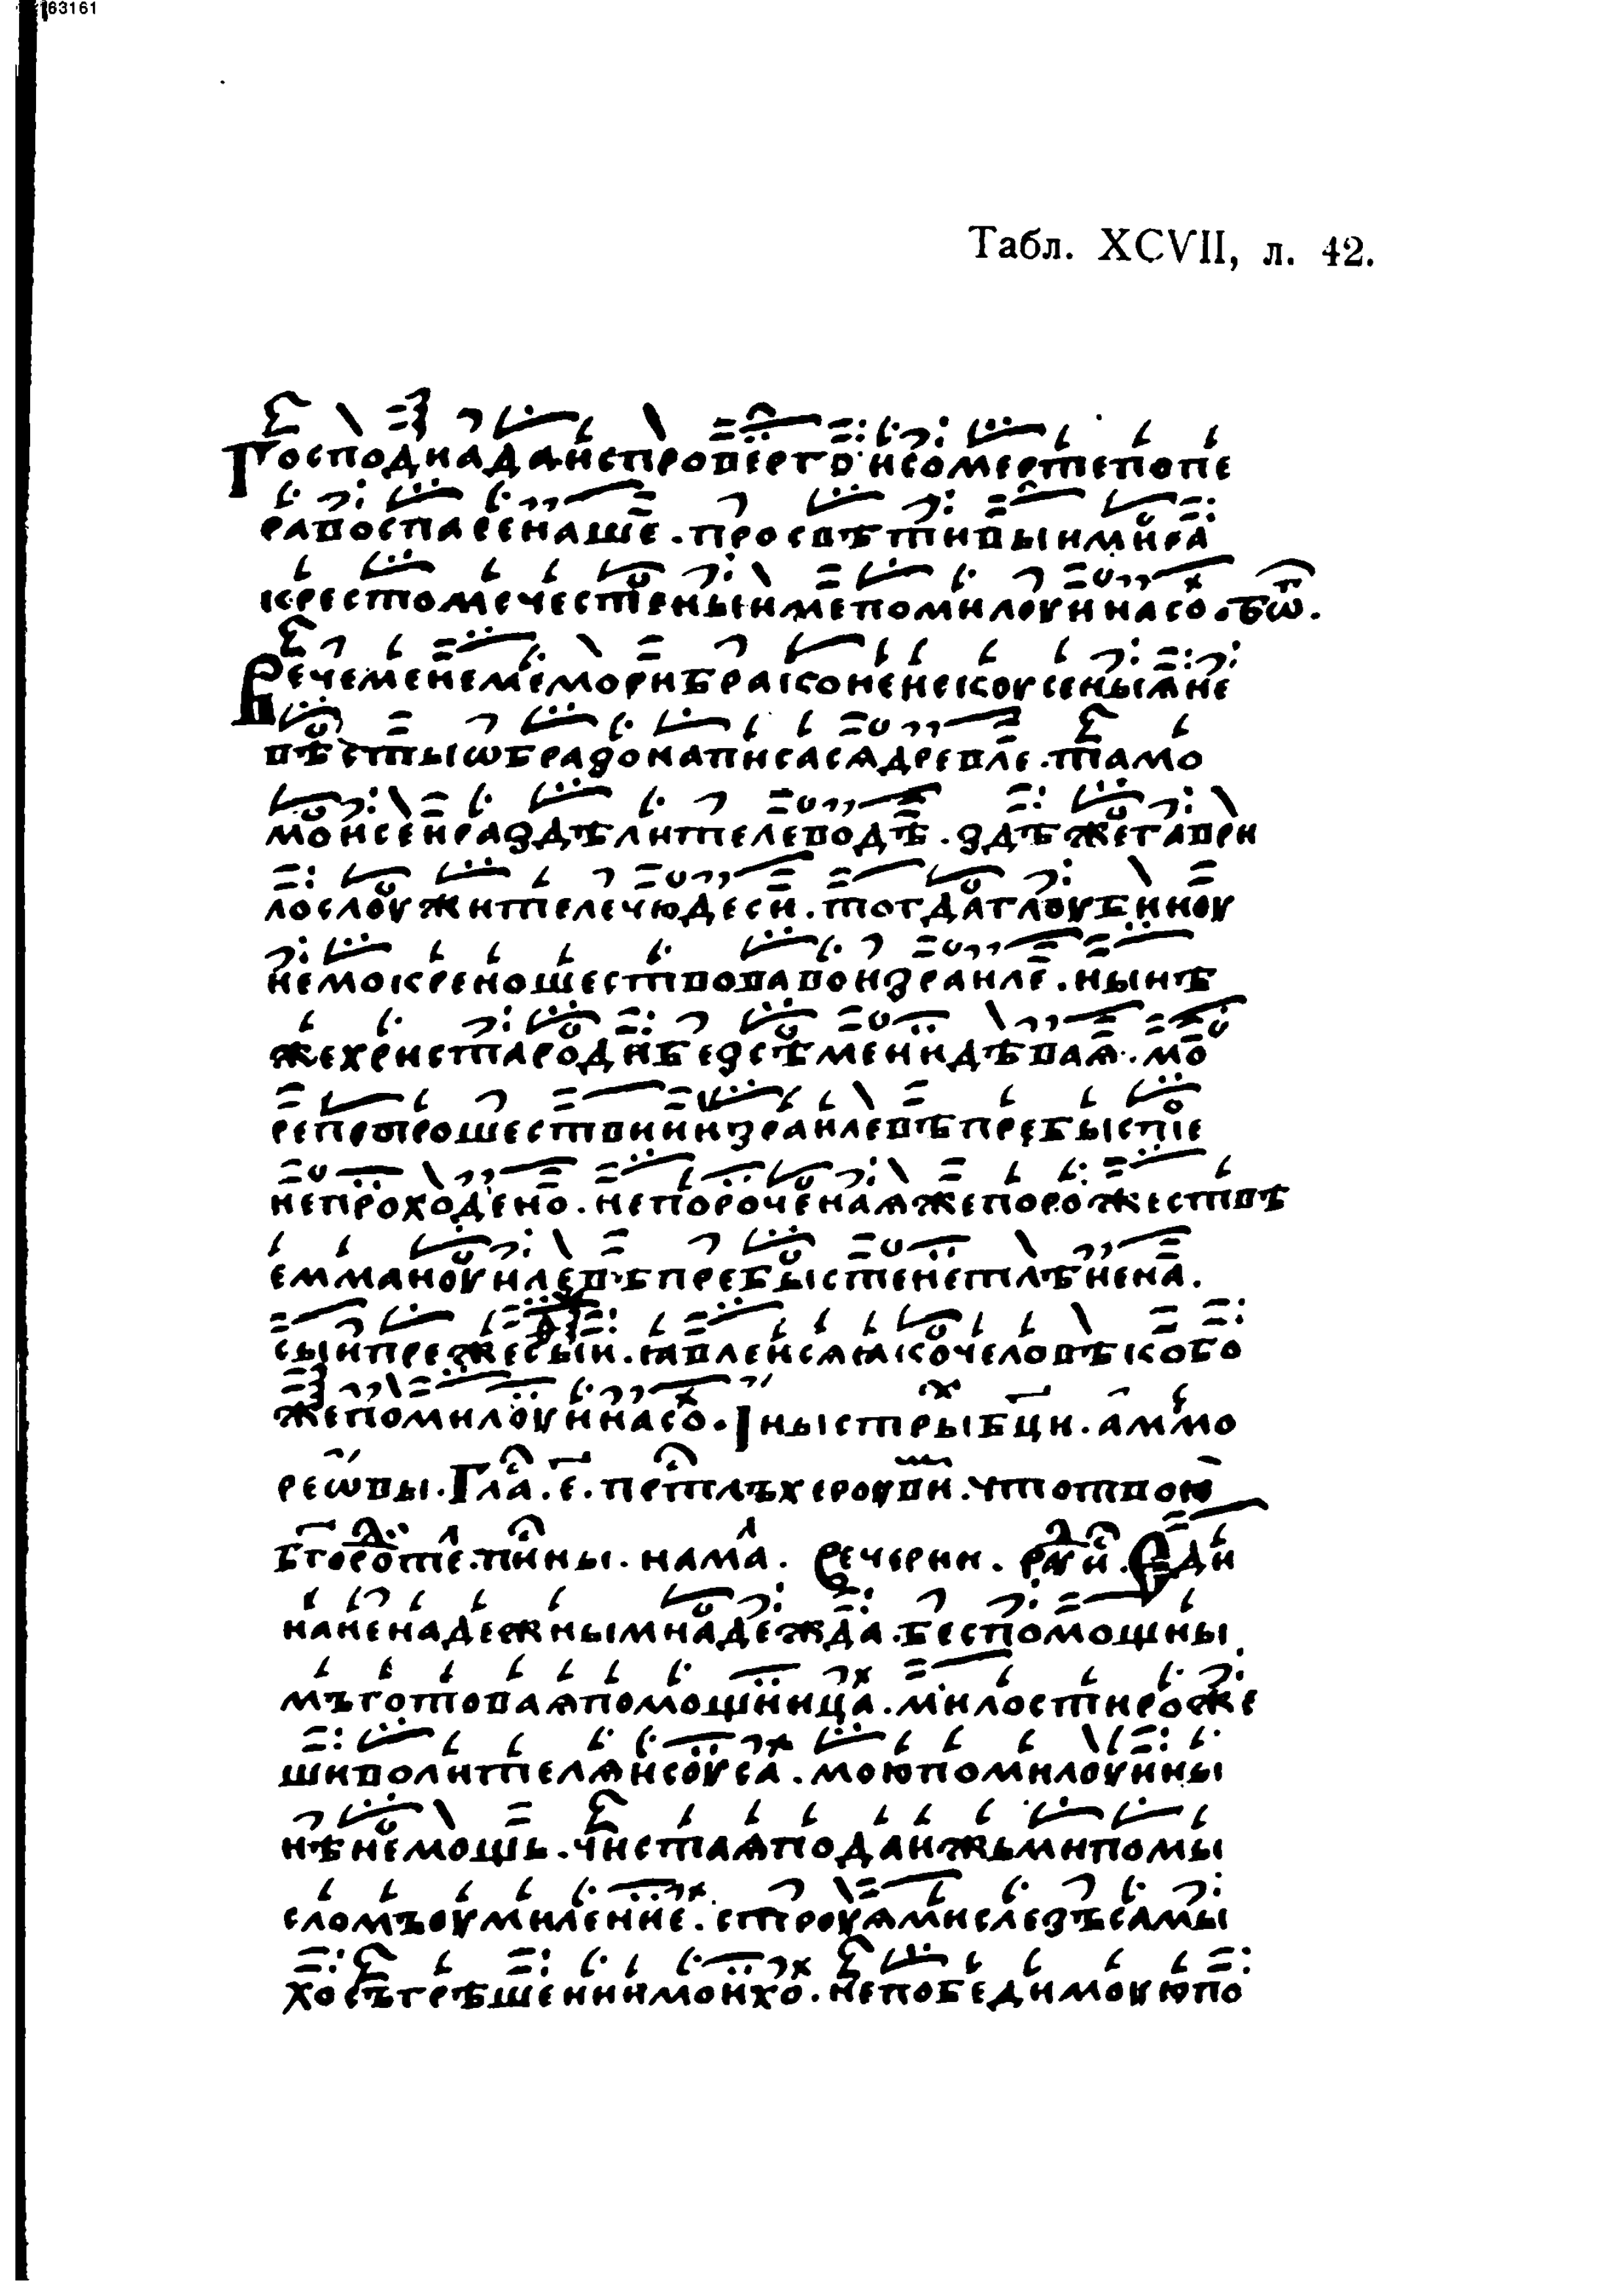 163161
Табл. XCVII, л. 42.
Господнаданспроверго҆исомертепопе
равоспаренаше.просвѣтивыимира
крестомечестеныимепомилоуинасо.бѿ.
Вечеменемеморибраконенекоусеныѧне
вѣстыѡбразонаписасѧдревле.тамо
моисеираздѣлителеводѣ.здѣжегаври
лослоужителечюдеси.тогдаглоубиноу
немокреношествовавоизраиле.нынѣ
жехристародибезсѣменидѣваѧ.мо
репопрошествиинзраилевѣпребыспiе
непроходено.непороченаѧжепорожествѣ
еммануилевѣпребыстенетлѣнена.
сыипрежесыи.ꙗвлеисѧꙗкочеловѣкобо
жепомилоуинасо.Iныстрыбци.аммо
реѡвы.Гла.е.петлъхероуви.чтотвою
нама. Вечерни.
наненадежнымнадежда.беспомощны
мъготоваѧпомощница.милостироже
шиволителѧисоуса.моюпомилоуины
нѣнемощь.чистаѧподаижьмипомы
сломъоумиление.строуѧмислезъсамы
хосъгрѣшениимоихо.непобедимоуюпо